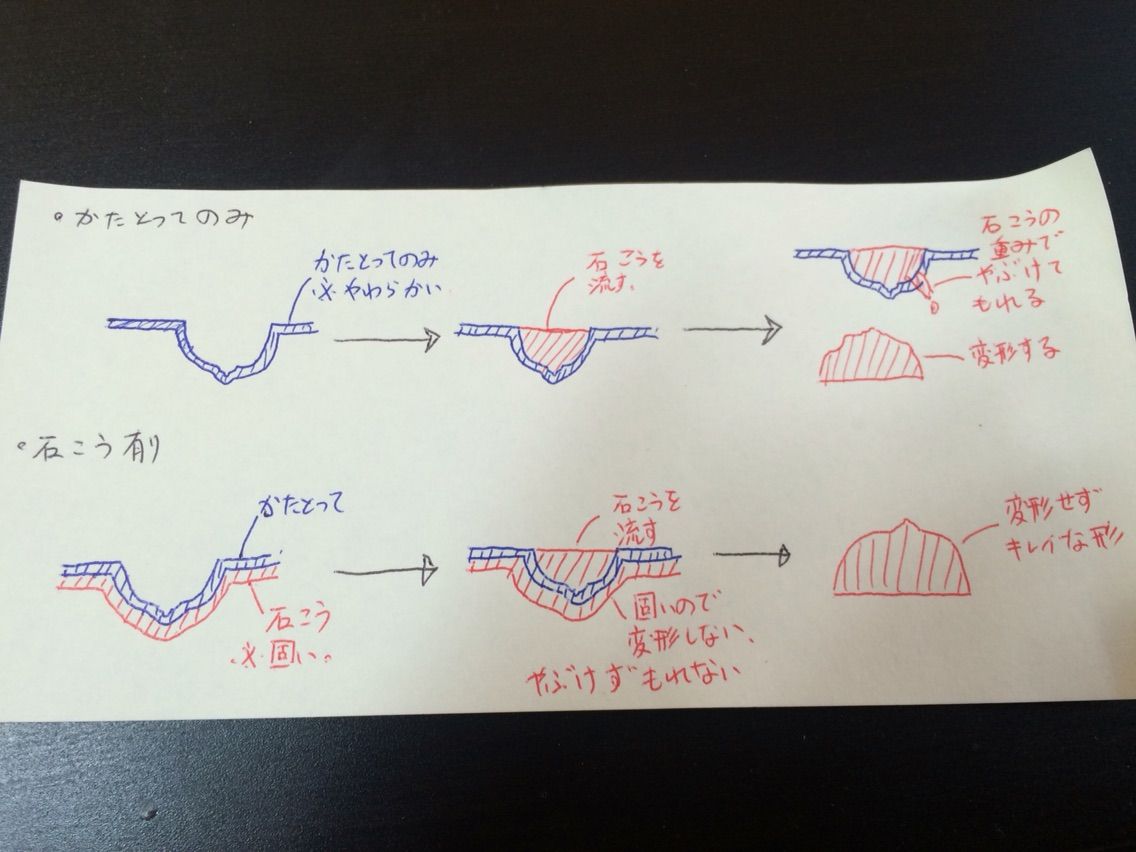 かたとってのみ
かたとってのみ
※やわらかい
石こうを
流す。
石こうの
重みで
やぶけて
もれる
変形する
石こう有り
かたとって
石こう
※固い。
石こうを
流す
固いので
変形しない、
やぶけずもれない
変形せず
キレイな形